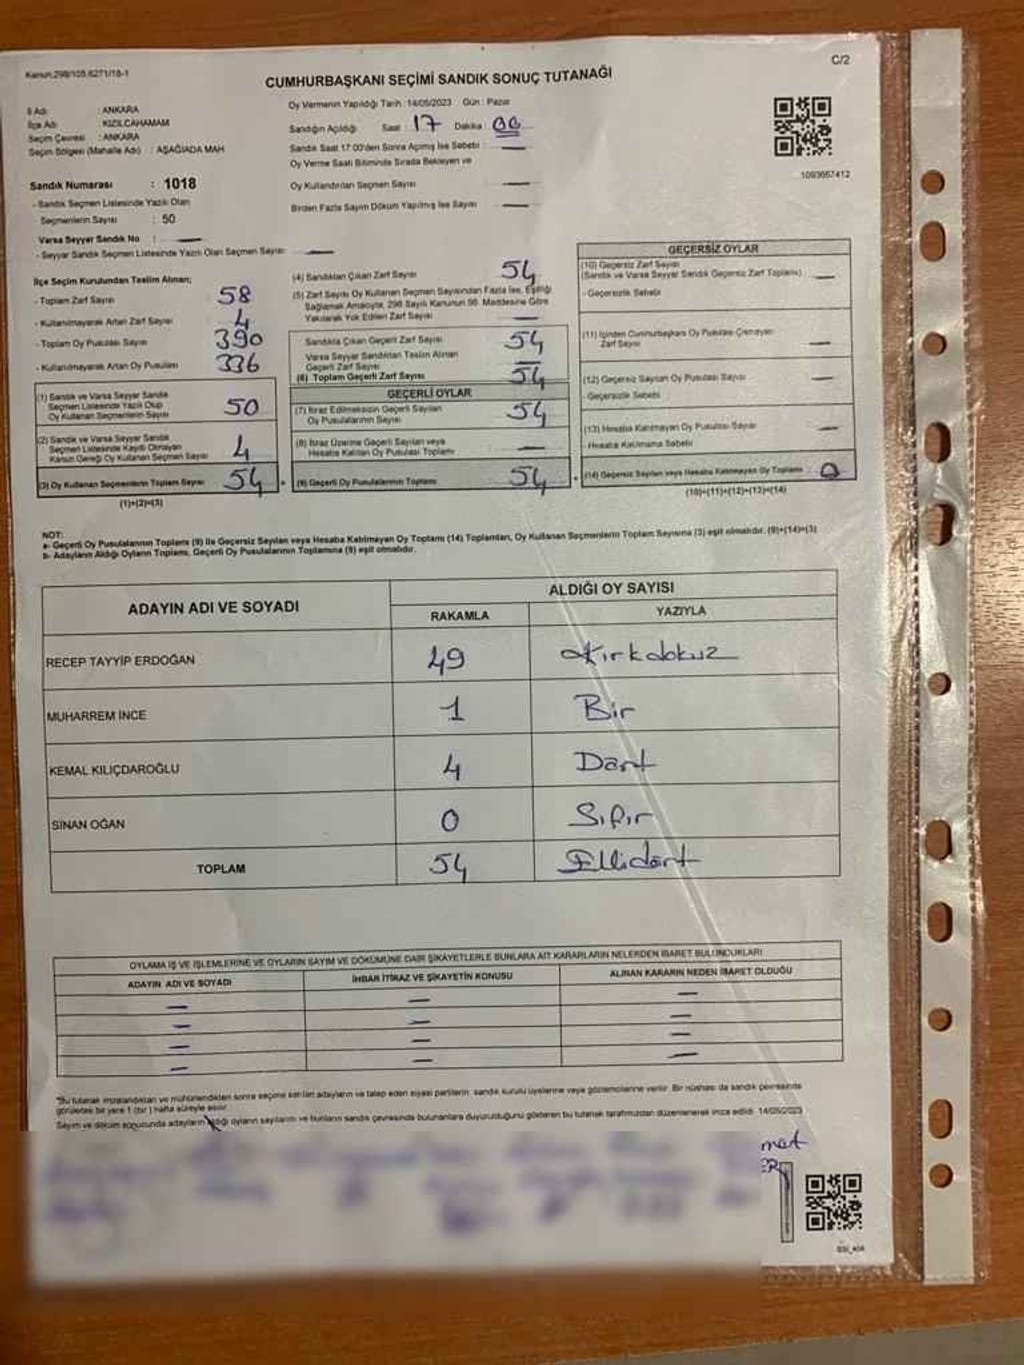 Kanun:298/105,6271/18-1
C/2
CUMHURBAŞKANI SEÇİMİ SANDIK SONUÇ TUTANAĞI
İl Adı : ANKARA
İlçe Adı : KIZILCAHAMAM
Seçim Çevresi : ANKARA
Seçim Bölgesi (Mahalle Adı) : AŞAĞIADA MAH
Sandık Numarası : 1018
- Sandık Seçmen Listesinde Yazılı Olan
Seçmenlerin Sayısı : 50
Varsa Seyyar Sandık No : —
- Seyyar Sandık Seçmen Listesinde Yazılı Olan Seçmen Sayısı —
Oy Vermenin Yapıldığı Tarih : 14/05/2023 Gün : Pazar
Sandığın Açıldığı Saat : 17 Dakika : 00
Sandık Saat 17:00'den Sonra Açılmış İse Sebebi : —
Oy Verme Saati Bitiminde Sırada Bekleyen ve
Oy Kullandırılan Seçmen Sayısı —
Birden Fazla Sayım Döküm Yapılmış İse Sayısı —
1093667412
İlçe Seçim Kurulundan Teslim Alınan;
- Toplam Zarf Sayısı 58
- Kullanılmayarak Artan Zarf Sayısı 4
- Toplam Oy Pusulası Sayısı 390
- Kullanılmayarak Artan Oy Pusulası 336
(1) Sandık ve Varsa Seyyar Sandık
Seçmen Listesinde Yazılı Olup
Oy Kullanan Seçmenlerin Sayısı 50
(2) Sandık ve Varsa Seyyar Sandık
Seçmen Listesinde Kayıtlı Olmayan
Kanun Gereği Oy Kullanan Seçmen Sayısı 4
(3) Oy Kullanan Seçmenlerin Toplam Sayısı 54
(1)+(2)=(3)
(4) Sandıktan Çıkan Zarf Sayısı 54
(5) Zarf Sayısı Oy Kullanan Seçmen Sayısından Fazla İse, Eşitliği
Sağlamak Amacıyla, 298 Sayılı Kanunun 98. Maddesine Göre
Yakılarak Yok Edilen Zarf Sayısı —
Sandıkta Çıkan Geçerli Zarf Sayısı 54
Varsa Seyyar Sandıktan Teslim Alınan
Geçerli Zarf Sayısı —
(6) Toplam Geçerli Zarf Sayısı 54
GEÇERLİ OYLAR
(7) İtiraz Edilmeksizin Geçerli Sayılan
Oy Pusulalarının Sayısı 54
(8) İtiraz Üzerine Geçerli Sayılan veya
Hesaba Katılan Oy Pusulası Toplamı —
(9) Geçerli Oy Pusulalarının Toplamı 54
GEÇERSİZ OYLAR
(10) Geçersiz Zarf Sayısı
(Sandık ve Varsa Seyyar Sandık Geçersiz Zarf Toplamı) —
- Geçersizlik Sebebi
(11) İçinden Cumhurbaşkanı Oy Pusulası Çıkmayan
Zarf Sayısı —
(12) Geçersiz Sayılan Oy Pusulası Sayısı —
- Geçersizlik Sebebi
(13) Hesaba Katılmayan Oy Pusulası Sayısı —
- Hesaba Katılmama Sebebi
(14) Geçersiz Sayılan veya Hesaba Katılmayan Oy Toplamı 0
(10)+(11)+(12)+(13)=(14)
NOT:
a- Geçerli Oy Pusulalarının Toplamı (9) ile Geçersiz Sayılan veya Hesaba Katılmayan Oy Toplamı (14) Toplamları, Oy Kullanan Seçmenlerin Toplam Sayısına (3) eşit olmalıdır. (9)+(14)=(3)
b- Adayların Aldığı Oyların Toplamı, Geçerli Oy Pusulalarının Toplamına (9) eşit olmalıdır.
ADAYIN ADI VE SOYADI
ALDIĞI OY SAYISI
RAKAMLA YAZIYLA
RECEP TAYYİP ERDOĞAN 49 Kırkdokuz
MUHARREM İNCE 1 Bir
KEMAL KILIÇDAROĞLU 4 Dört
SİNAN OĞAN 0 Sıfır
TOPLAM 54 Ellidört
OYLAMA İŞ VE İŞLEMLERİNE VE OYLARIN SAYIM VE DÖKÜMÜNE DAİR ŞİKAYETLERLE BUNLARA AİT KARARLARIN NELERDEN İBARET BULUNDUKLARI
ADAYIN ADI VE SOYADI İHBAR İTİRAZ VE ŞİKAYETİN KONUSU ALINAN KARARIN NEDEN İBARET OLDUĞU
— — —
— — —
— — —
— — —
*Bu tutanak imzalandıktan ve mühürlendikten sonra seçime katılan adayların ve talep eden siyasi partilerin sandık kurulu üyelerine veya gözlemcilerine verilir. Bir nüshası da sandık çevresinde
görülebilir bir yere 1 (bir) hafta süreyle asılır.
Sayım ve döküm sonucunda adayların aldığı oyların sayılarını ve bunların sandık çevresinde bulunanlara duyurulduğunu gösteren bu tutanak tarafımızdan düzenlenerek imza edildi. 14/05/2023